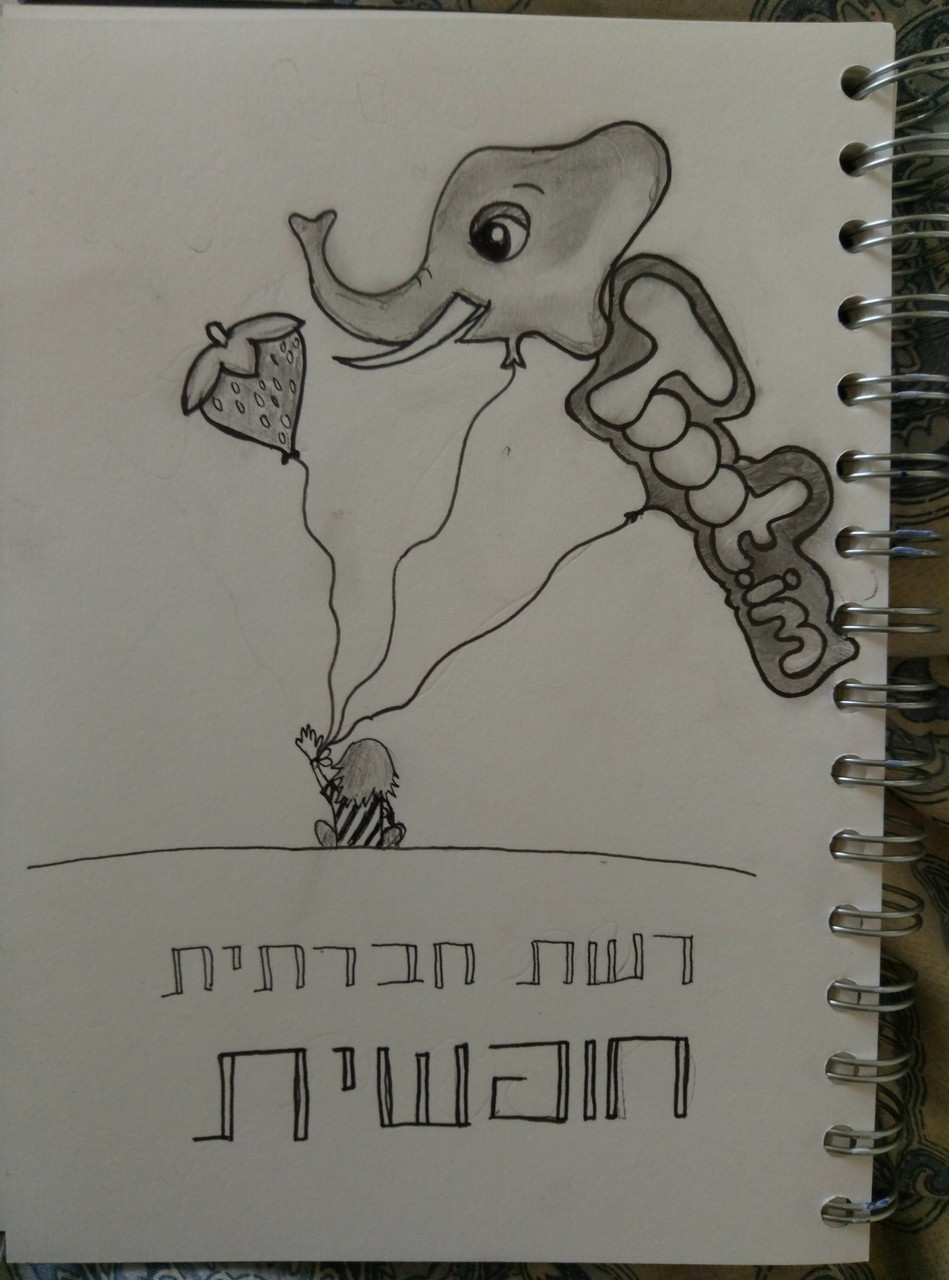 Tooot.im
רשת חברתית
חופשית